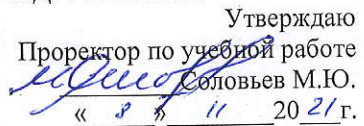 Утверждаю
Проректор по учебной работе
Соловьев М.Ю.
« 8 » 11 20 21 г.